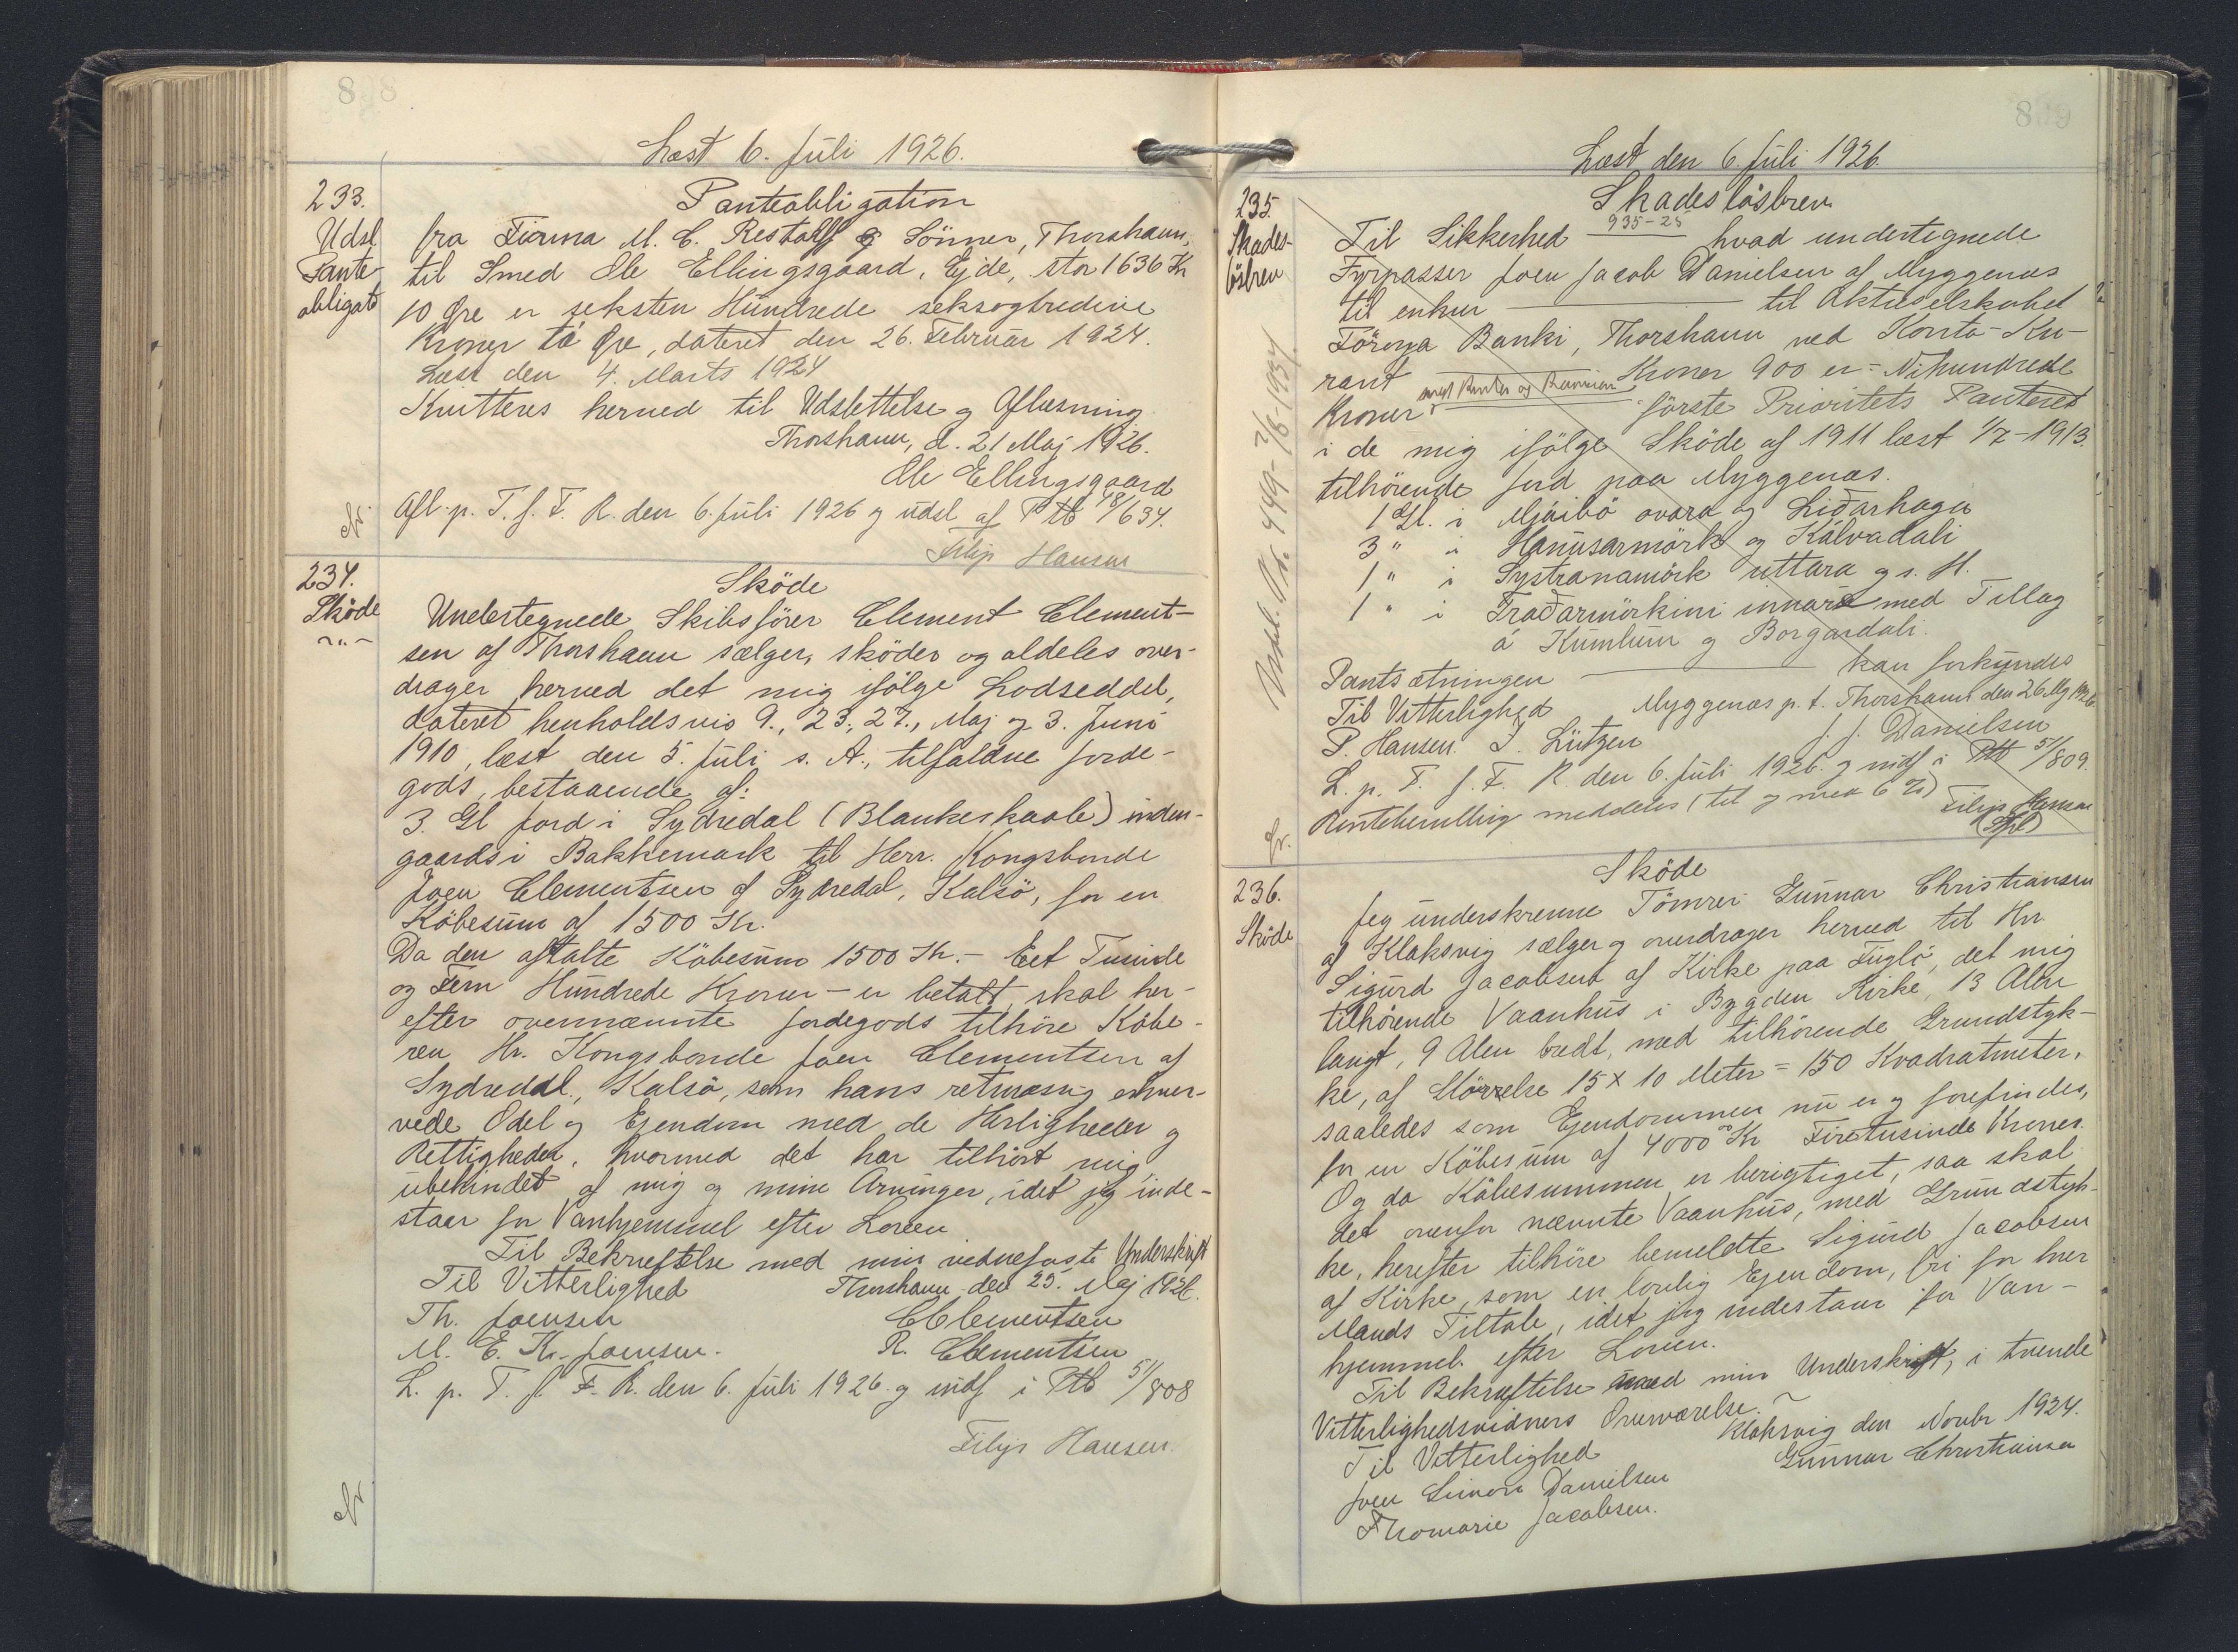 808
Læst 6. Juli 1926.
233.
Udsl.
Pante-
obligat
Panteobligation
fra Firma M. C. Restorff & Sönner, Thorshavn,
til Smed Ole Ellingsgaard, Ejde, stor 1636 Kr
10 Øre er seksten Hundrede seksogtredive
Kroner ti Øre, dateret den 26. Februar 1924.
Læst den 4. Marts 1924
Kvitteres herved til Udslettelse og Aflæsning
Thorshavn, d. 21 Maj 1926.
Ole Ellingsgaard
Afl. p. T. f. F. R. den 6. Juli 1926 og udsl af Ptb 48/634.
Filip Hansen
234.
Sköde
Sköde
Undertegnede Skibsfører Clement Clement-
sen af Thorshavn sælger, sköder og aldeles over-
drager herved det mig ifölge Lodseddel,
dateret henholdsvis 9., 23., 27., Maj og 3. Juni
1910, læst den 5. Juli s. A., tilfaldne Jorde-
gods, bestaaende af:
3. Gl Jord i Sydredal (Blankeskaale) inden-
gaards i Bakkemark til Herr. Kongsbonde
Joen Clementsen af Sydredal, Kalsö, for en
Köbesum af 1500 Kr.
Da den aftalte Köbesum 1500 Kr. – Eet Tusinde
og Fem Hundrede Kroner – er betalt, skal her-
efter ovennævnte Jordegods tilhöre Köbe-
ren Hr. Kongsbonde Joen Clementsen af
Sydredal, Kalsö, som hans retmæssig erhver-
vede Odel og Ejendom med de Herligheder og
Rettigheder, hvormed det har tilhört mig,
ubehindet af mig og mine Arvinger, idet jeg inde-
staar for Vanhjemmel efter Loven
Til Bekræftelse med min vedheftede Underskrift
Til Vitterlighed Thorshavn den 25. Maj 1926.
Th. Joensen CClementsen
M. E. K. Joensen. R. Clementsen
L. p. T. f. F. R. den 6. Juli 1926 og indf i Ptb 51/808
Filip Hansen.
809
Læst den 6. Juli 1926.
235.
Skades-
lösbrev
Skadeslösbrev
935-25
Til Sikkerhed hvad undertegnede
Fyrpasser Joen Jacob Danielsen af Myggenæs
til enhver til Aktieselskabet
Föroya Banki, Thorshavn ved Konto-Ku-
rant Kroner 900 er = Nihundrede
Kroner første Prioritets Panteret
i de mig ifölge Sköde af 1911 læst 1/7-1913.
tilhörende Jord paa Myggenæs.
1 Gl. i ovara og Liðarhaga
3 " i Hanusarmørk og Kálvadali
1 " i Systranamörk uttara og s. H.
1 " i Traðarmörkini innara med Tillag
á Kumlum og Borgardali.
Pantsætningen kan forkyndes
Til Vitterlighed Myggenæs p. t. Thorshavn den 26 Maj 1926.
P. Hansen. J. Lützen J. J. Danielsen
L. p. T. f. F. R. den 6. Juli 1926 og indf i Ptb 51/809.
Rentebevilling meddeles (til og med 6 %) Filip Hansen
236.
Sköde
Sköde
Jeg underskrevne Tömrer Gunnar Christiansen
af Klaksvig sælger og overdrager herved til Hr.
Sigurd Jacobsen af Kirke paa Fuglö, det mig
tilhörende Vaanhus i Bygden Kirke, 13 Alen
langt, 9 Alen bredt, med tilhörende Grundstyk-
ke, af Störrelse 15 x 10 Meter = 150 Kvadratmeter,
saaledes som Ejendommen nu er og forefindes,
for en Köbesum af 4000 Kr Firetusinde Kroner.
Og da Köbesummen er berigtiget, saa skal
det ovenfor nævnte Vaanhus, med Grundstyk-
ke, herefter tilhöre bemeldte Sigurd Jacobsen
af Kirke, som en lovlig Ejendom, fri for hver
Mands Tiltale, idet jeg indestaar for Van-
hjemmel efter Loven.
Til Bekræftelse med min Underskrift, i tvende
Vitterlighedsvidners Overværelse.
Klaksvig den Novbr 1924.
Til Vitterlighed Gunnar Christiansen
Joen Simon Danielsen
Thomarie Jacobsen.